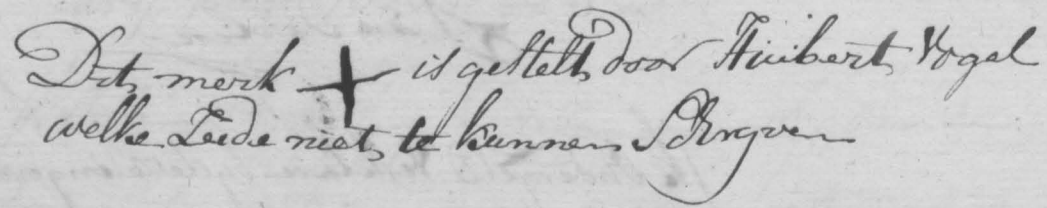 Dit merk + is gestelt door Huibert Vogel
welke Zeide niet te kunnen Schryven